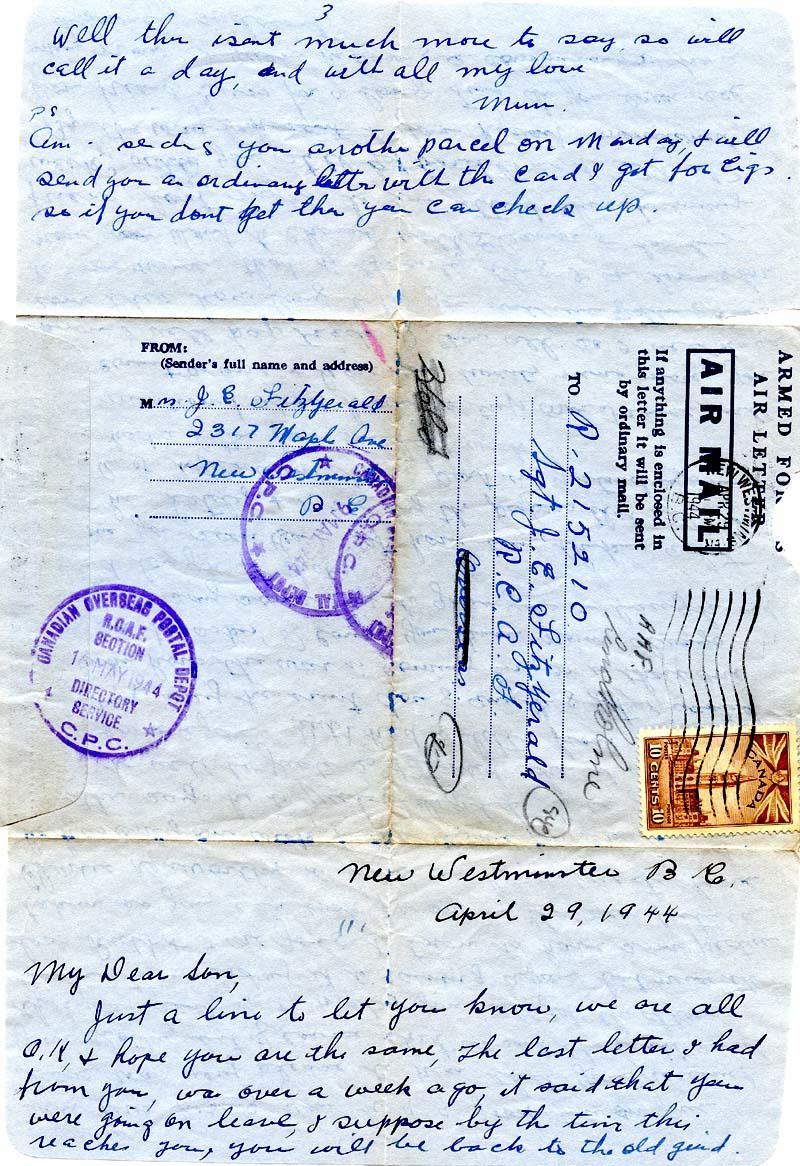 3
Well ther isent much more to say, so will
call it a day, and with all my love
Mum.
PS
Am sending you another parcel on Monday, & will
send you an ordinary letter with the card I got for cigs.
so if you dont get them you can check up.
FROM:
(Sender's full name and address)
Mrs J. E. Fitzgerald
2317 Maple Ave
New Westminster
B C
CANADIAN OVERSEAS POSTAL DEPOT
R.C.A.F.
SECTION
MAY 1944
DIRECTORY
SERVICE
C.P.C.
C.P.C.
C.P.C.
ARMED FOR S
AIR LETTER
AIR MAIL
If anything is enclosed in
this letter it will be sent
by ordinary mail.
NEW WESTMIN
APR 29
1944
B.C.
TO R.215210
Sgt. J. E. Fitzgerald
R. C. A. F.
Overseas
RAF
CANADA
10 CENTS 10
New Westminster B C.
April 29, 1944
My Dear Son,
Just a line to let you know, we are all
O.K, & hope you are the same, The last letter I had
from you, was over a week ago, it said that you
were going on leave, I suppose by the time this
reaches you, you will be back to the old grind.